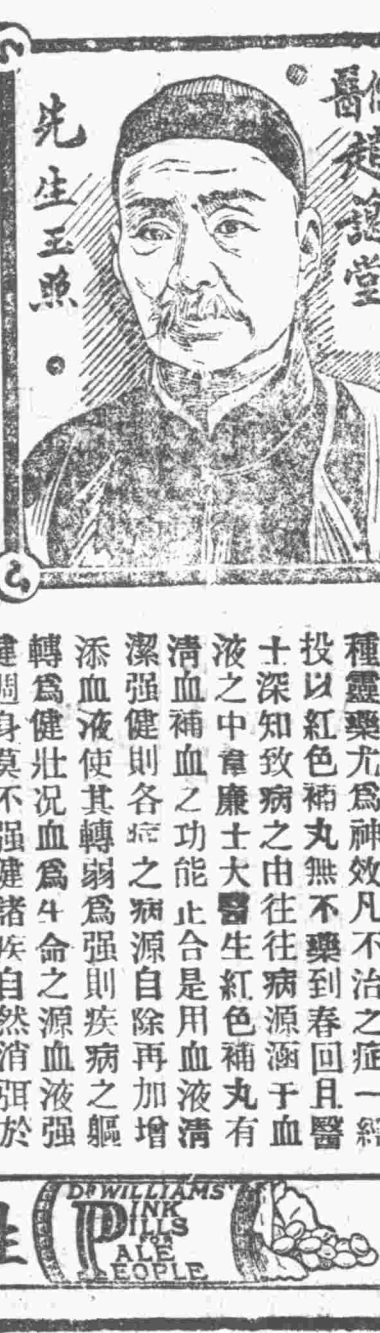 醫趙謐堂
先生玉照
種靈藥尤爲神效凡不治之症一經
投以紅色補丸無不藥到春回且醫
士深知致病之由往往病源涵于血
液之中韋廉士大醫生紅色補丸有
清血補血之功能止合是用血液清
潔强健則各症之病源自除再加增
添血液使其轉弱爲强則疾病之軀
轉爲健壯况血爲生命之源血液强
健週身莫不强健諸疾自然消弭於
生
DR WILLIAMS'
PINK
PILLS
FOR
PALE
PEOPLE